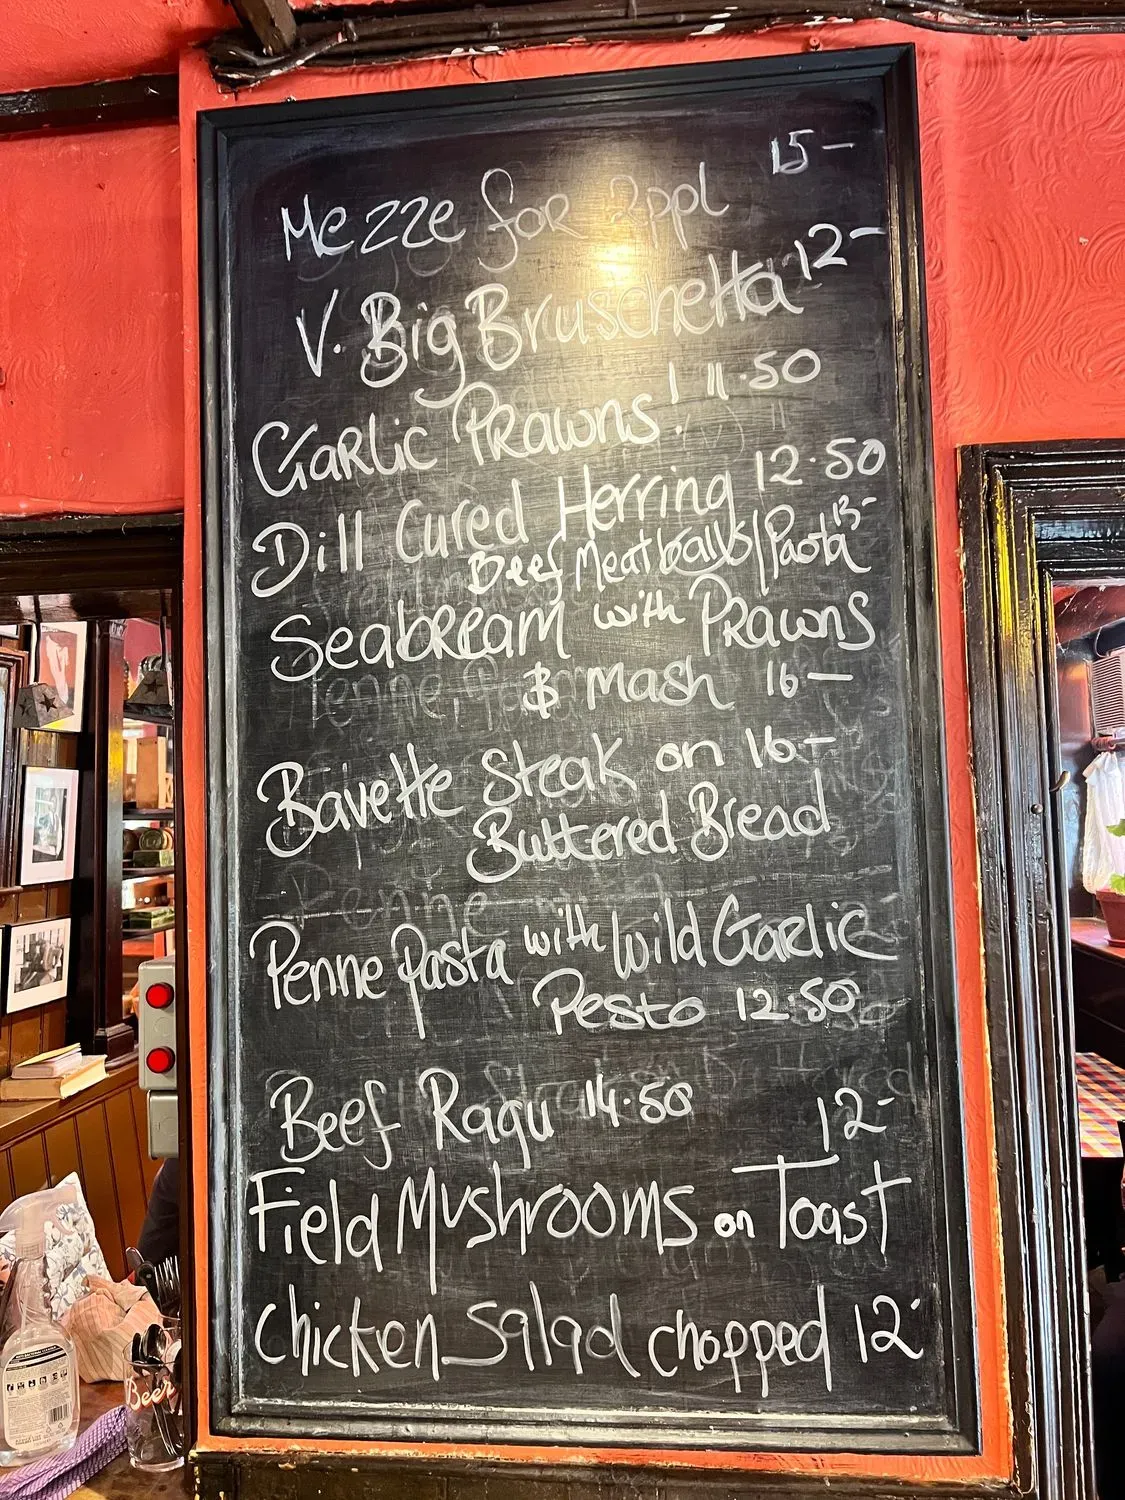 15-
Mezze for 2ppl
V. Big Bruschetta 12-
Garlic Prawns! 11.50
Dill Cured Herring 12.50
Beef Meatballs/Pasta 13-
Seabream with Prawns
& Mash 16-
Bavette Steak on 16.-
Buttered Bread
Penne Pasta with Wild Garlic
Pesto 12.50
Beef Ragu 14.50
12-
Field Mushrooms on Toast
Chicken Salad chopped 12
Beer